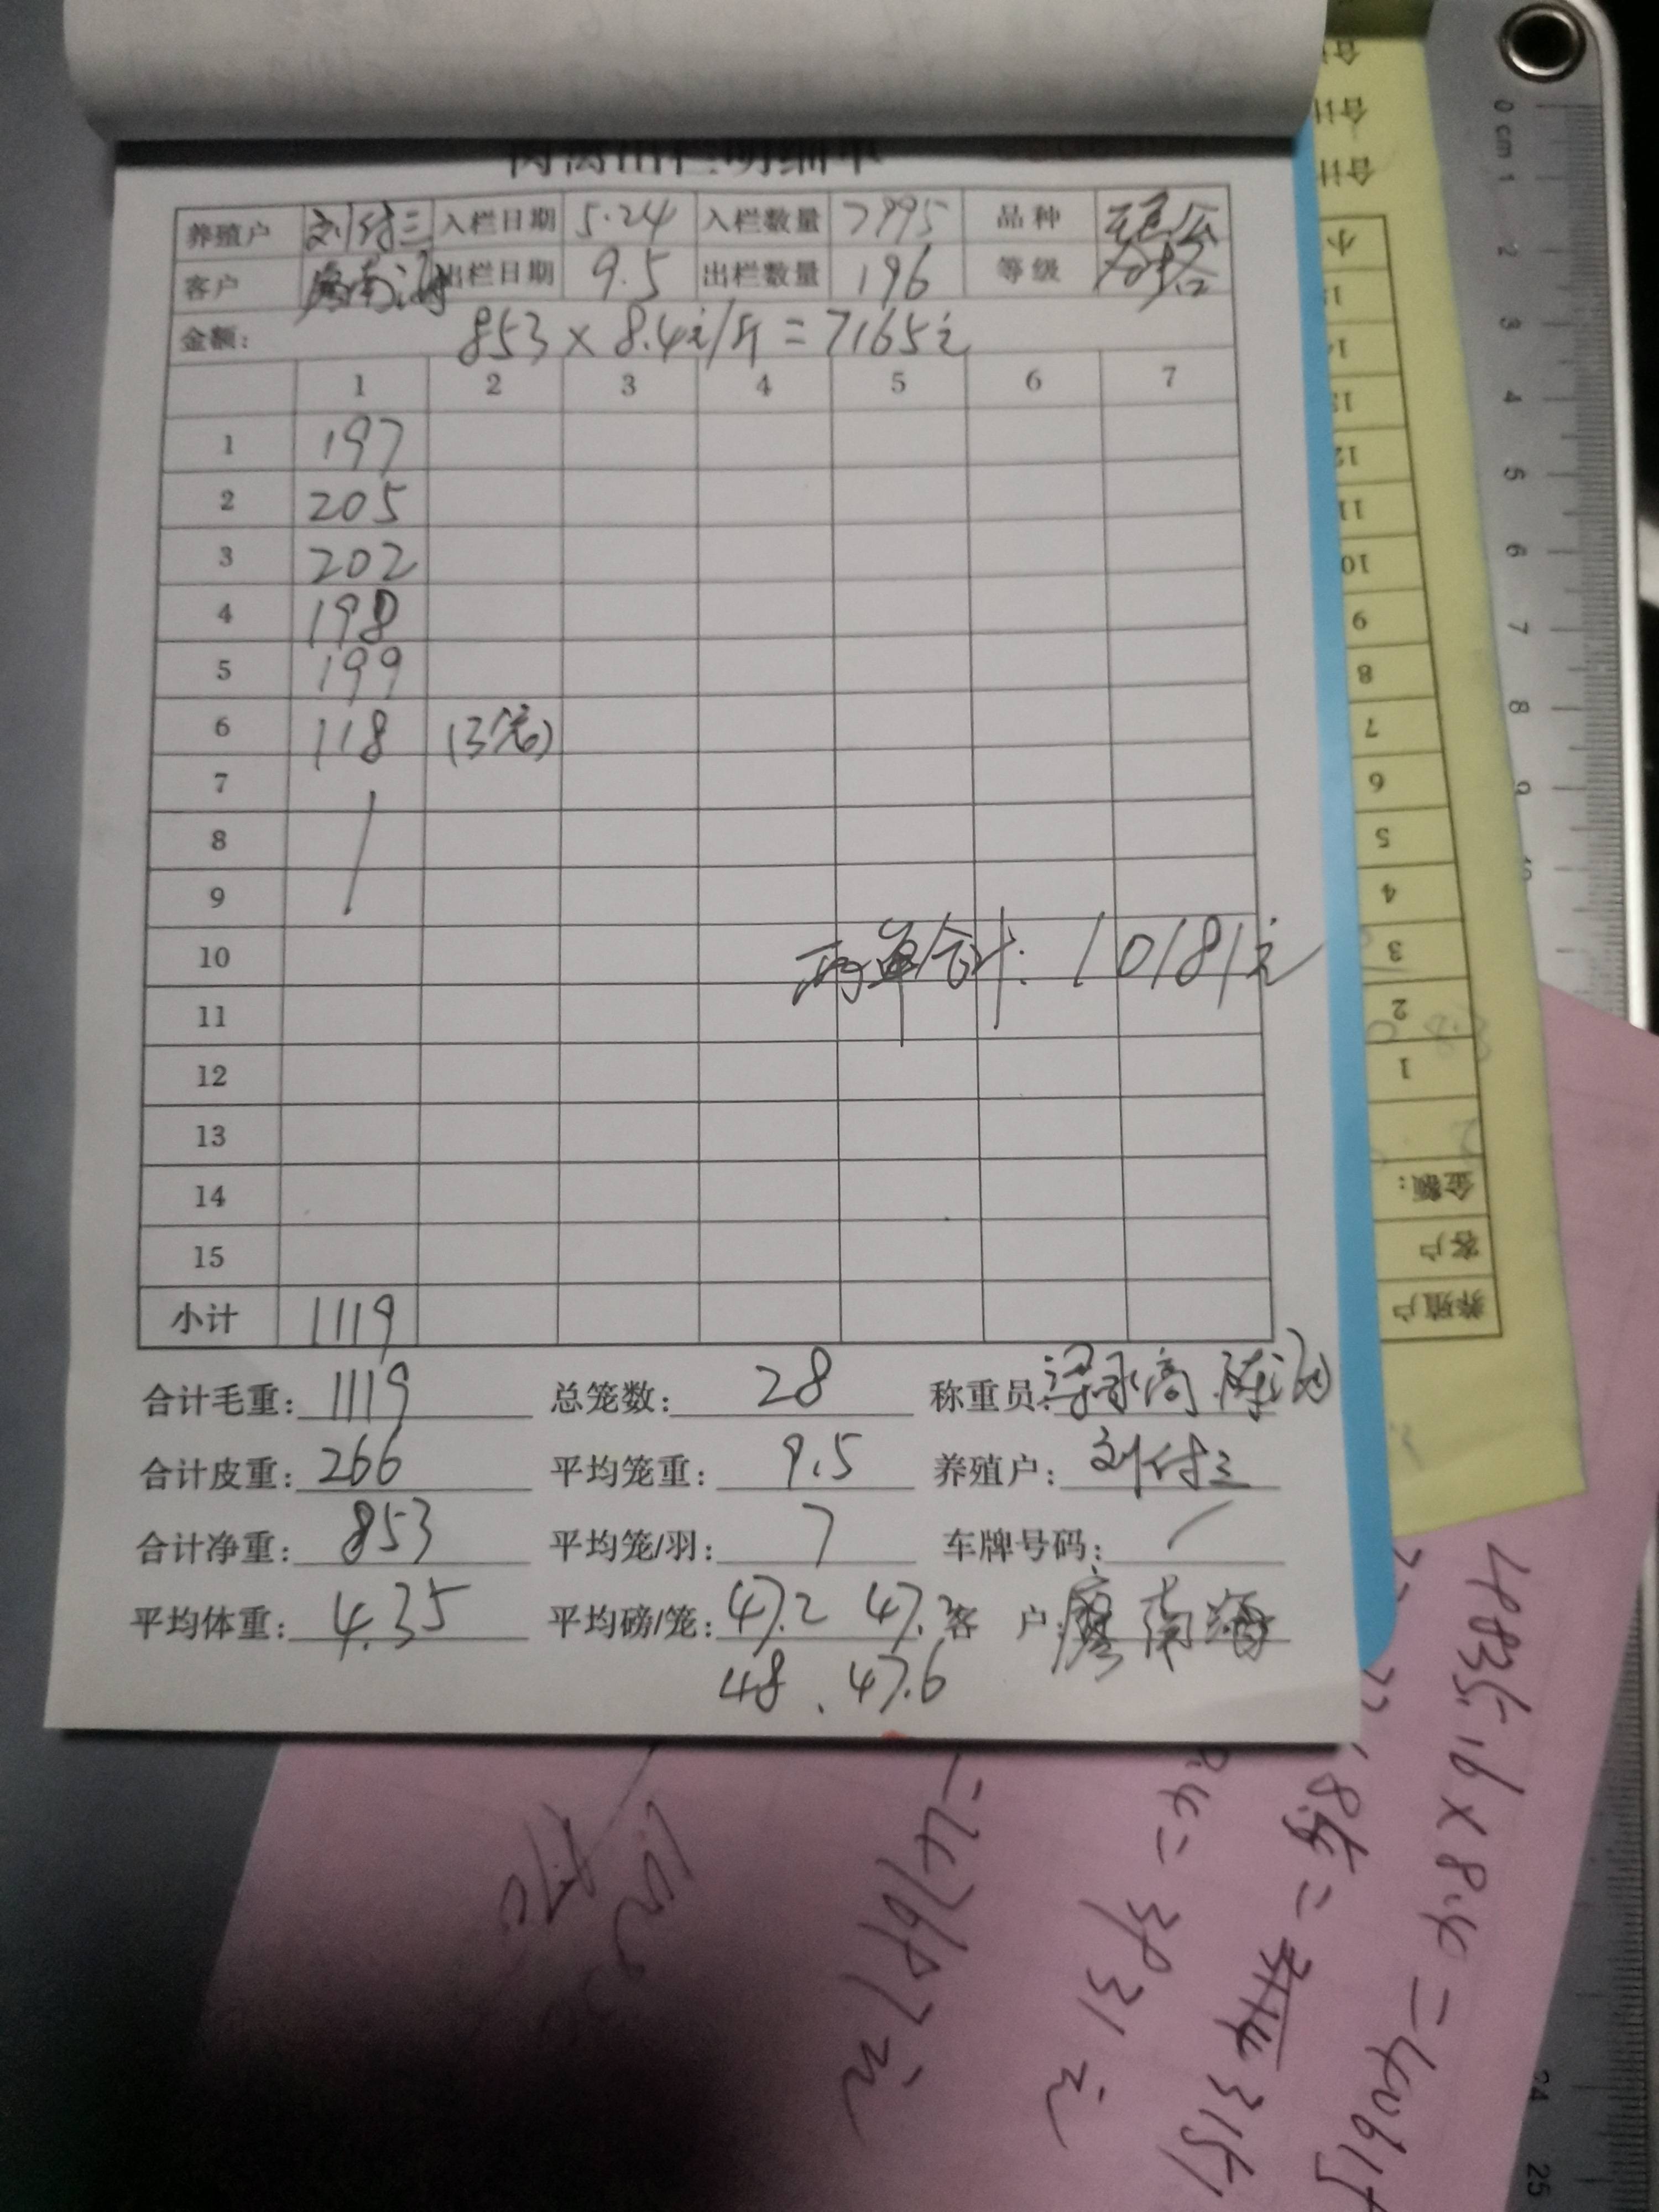 养殖户 刘付三 入栏日期 5.24 入栏数量 7995 品种
客户 廖南海 出栏日期 9.5 出栏数量 196 等级 合格
金额: 853×8.4元/斤=7165元
1 2 3 4 5 6 7
1 197
2 205
3 202
4 198
5 199
6 118 (3笼)
7
8
9
10 两单合计: 10181元
11
12
13
14
15
小计 1119
合计毛重: 1119 总笼数: 28 称重员:
合计皮重: 266 平均笼重: 9.5 养殖户: 刘付三
合计净重: 853 平均笼/羽: 7 车牌号码: /
平均体重: 4.35 平均磅/笼: 47.2 47.2 客户: 廖南海
48 . 47.6
合计
合计
小
12
11
10
9
8
7
6
5
4
3
2
1
金额:
客户
养殖户
0 cm 1
2
3
4
5
6
7
8
9
24
25